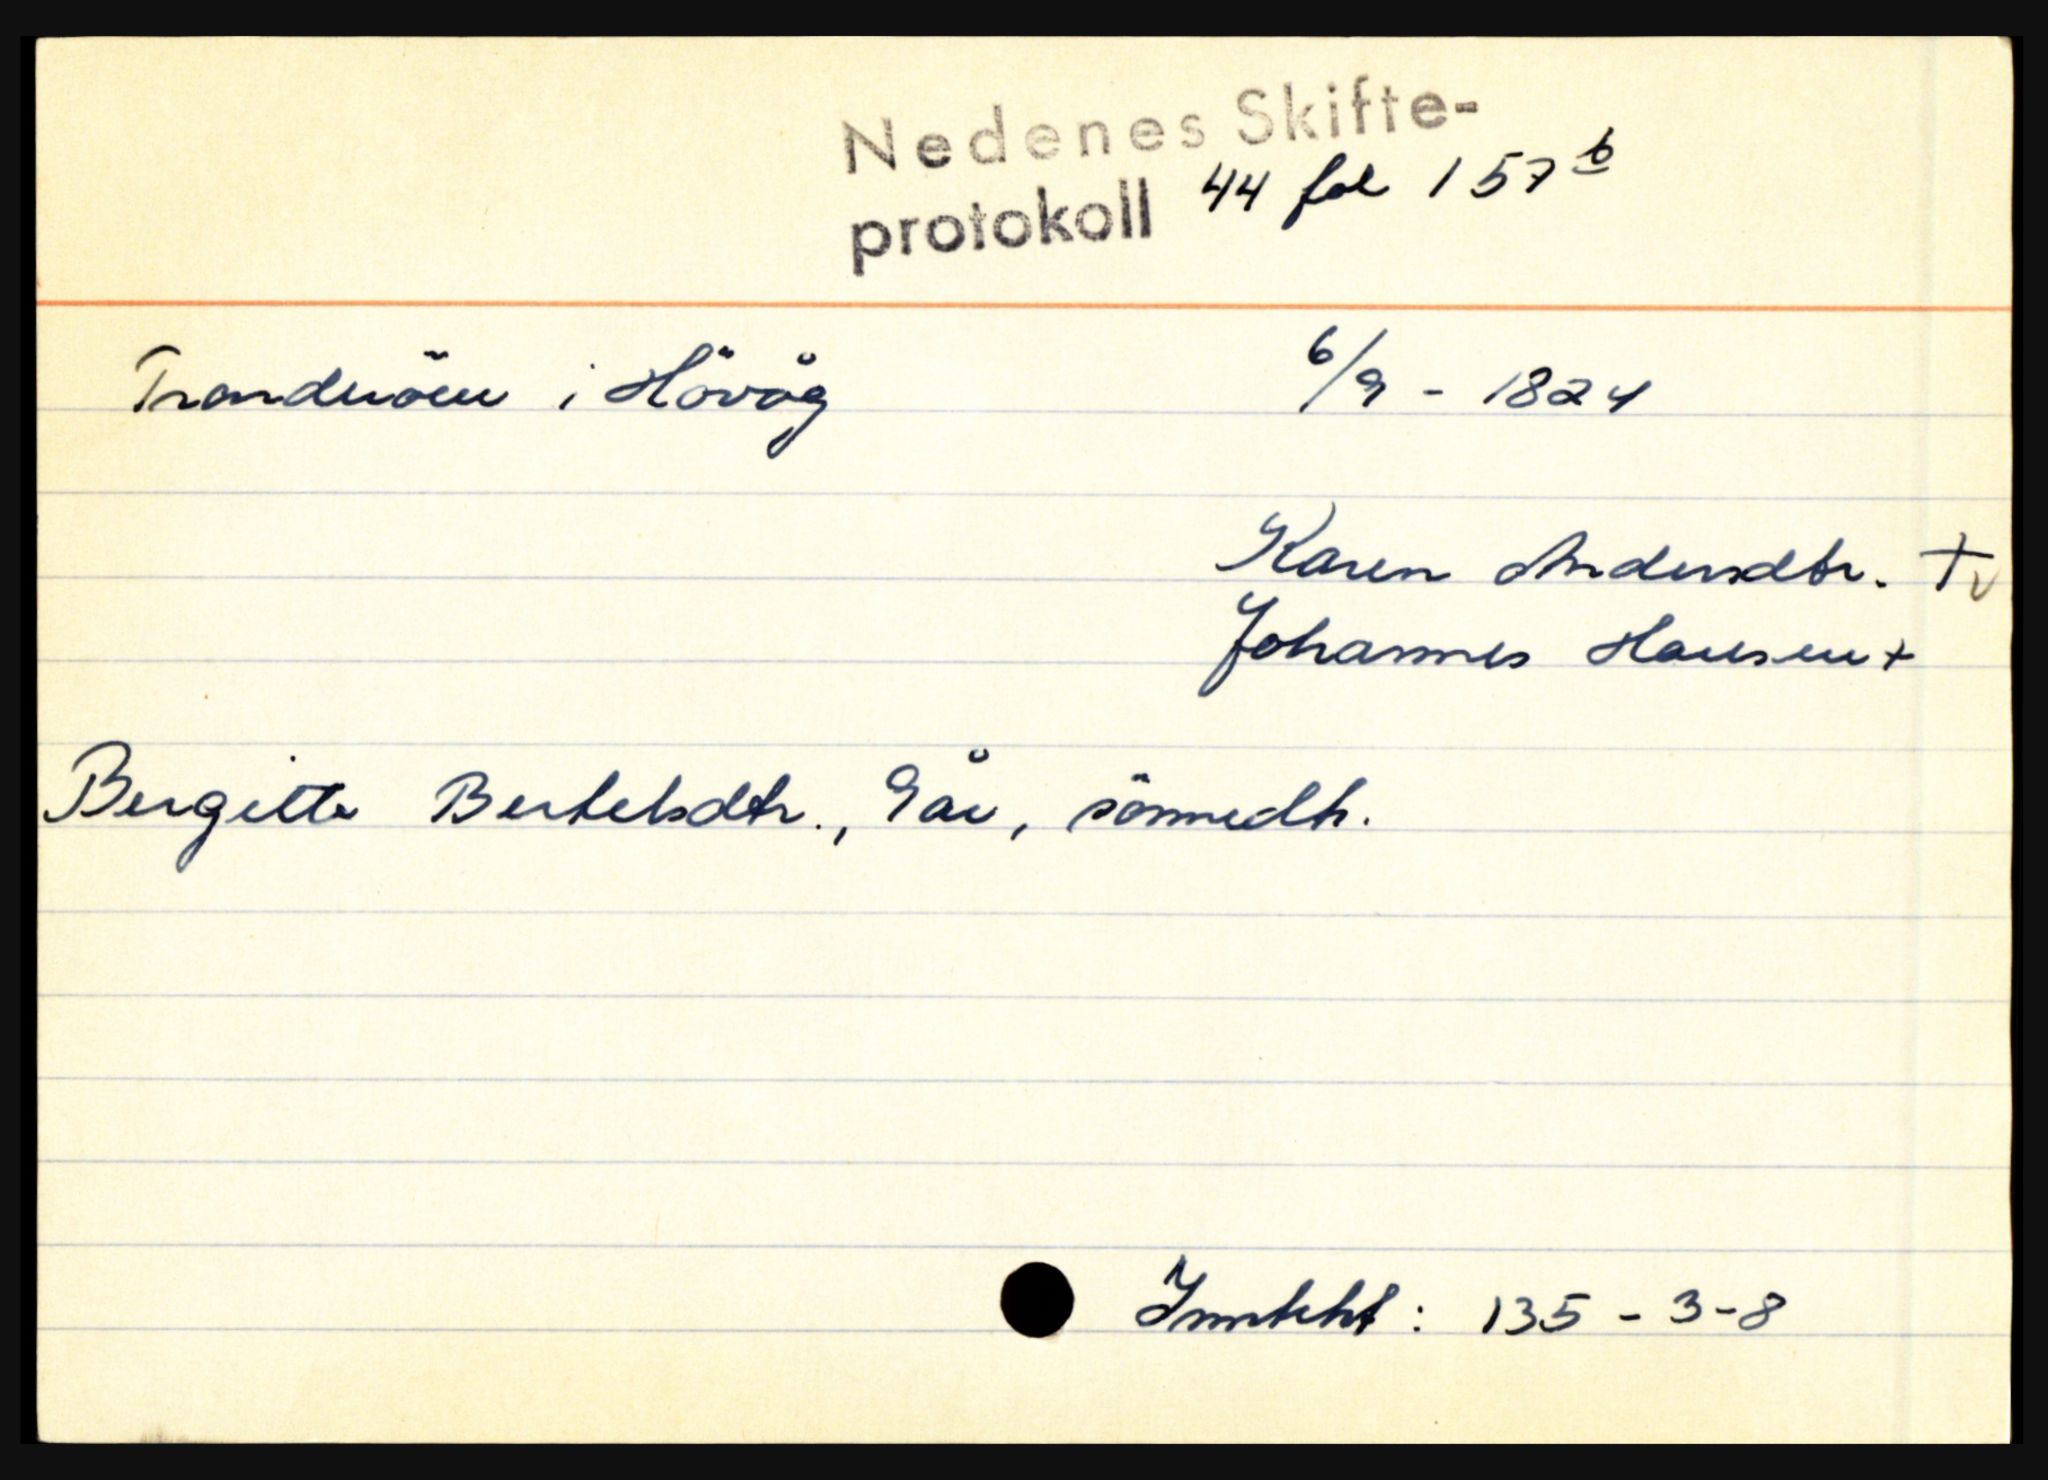 Nedenes Skifte-
protokoll 44 fol 157 b
Trandenöen i Hövåg 6/9 - 1824
Karen Andersdtr. +
Johannes Hansen +
Bergitte Bertelsdtr., 9 år, sönnedtr.
Inntekt: 135 - 3 - 8